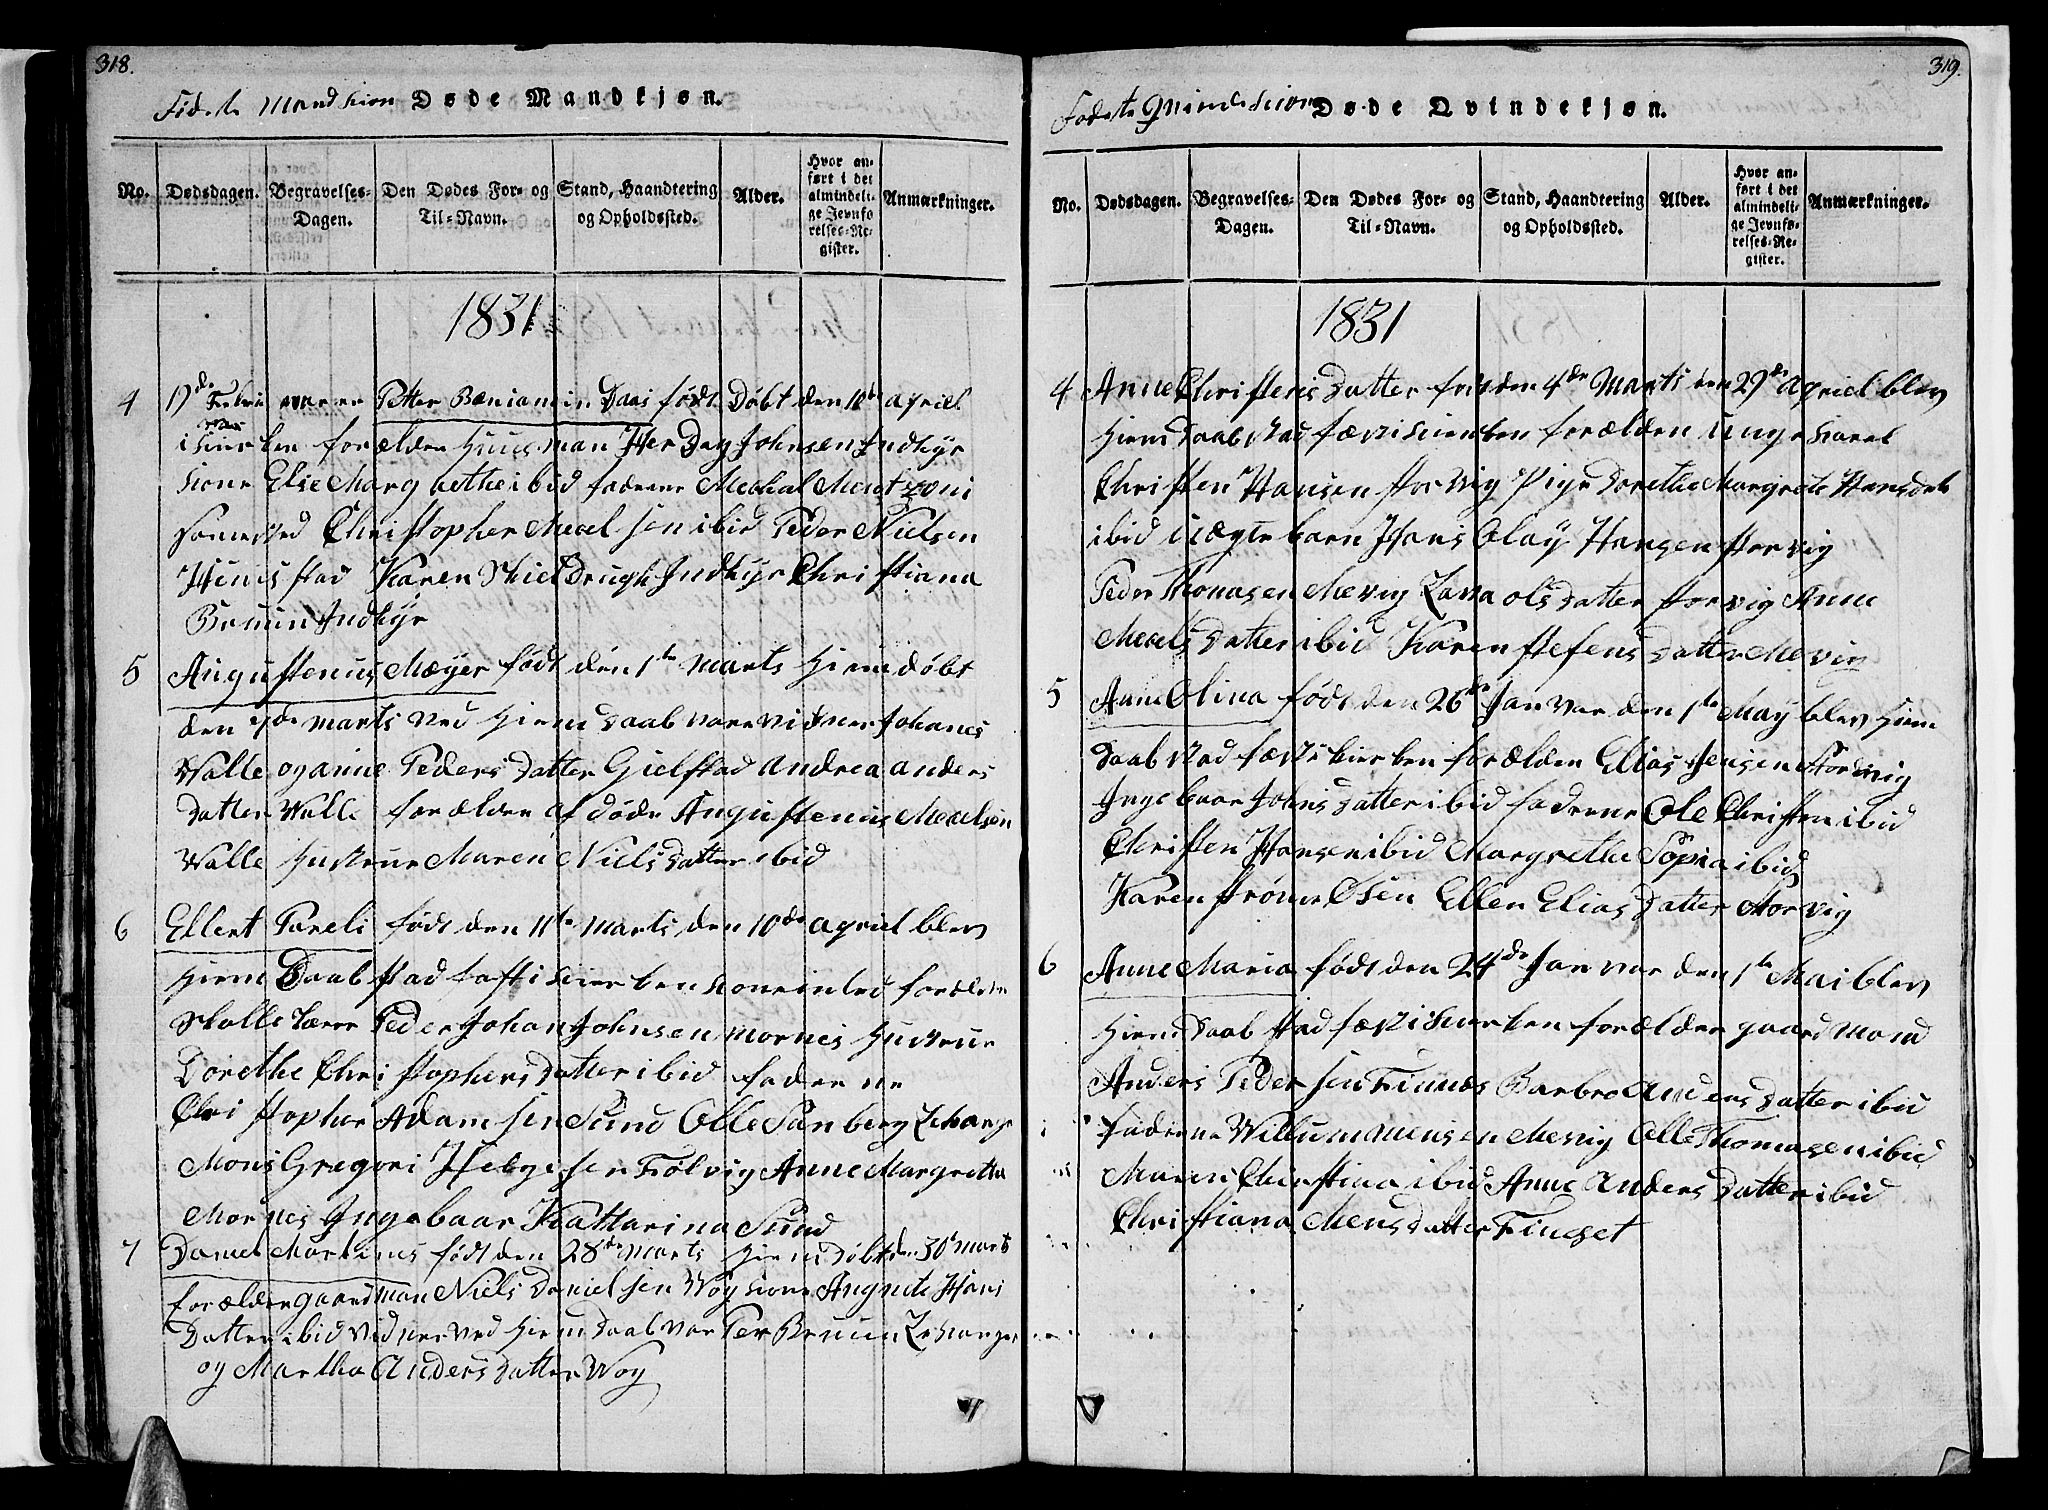 318.
Fødte Mandkion Døde Mandkjøn.
No. Dødsdagen. Begravelses-Dagen. Den Dødes For- og Til-Navn. Stand, Haandtering og Opholdssted. Alder. Hvor anført i det almindelige Jevnførelses-Register. Anmærkninger.
1831
4 17de Februar er Petter Beniamin Daas født Døbt den 10de apriel
i kierken forælder Huusman Her Dag Johnsen Indhyr
kone Else Marg rethe ibid fadrene Mechal Mentzoni
Sonested Christopher Mecelsen ibid Peder Nielsen
stad Karen Skieldrugh Indhyr Christiana
Bruun Indhyr
5 Augustenus Mæyer født den 1te Marts Hiemdøbt
den 7de marts ved Hiem daab vare vidner Johanes
Valle og anne Peders Datter Gielstad Andrea anders
datter Valle forældre af døde Augustenus Mecelsen
Valle Hustrue Maren Niels Datter ibid
6 Ellert Pareli født den 11te Marts den 10de apriel blev
Hiem Daab stadfæst i kierken forælder
Skolle Lærer Peder Johan Johnsen Mornes Hustrue
Dorethe Christophers Datter ibid faderne
Christopher Adamsen Sund Olle Sanberg
Mons Gregori Helgesen Følvig Anne Margretha
Mornes Ingebaar Kattarina Sund
7 Daniel Martinus født den 28de marts Hiemdøbt den 30te marts
forælder gaardman Niels Danielsen Vog kone Angnete Hans
Datter ibid vidner ved Hiem Daab var Per Bruun
og Martha Anders datter Vog
319.
Fødte Qvindekion Døde Qvindekjøn.
No. Dødsdagen. Begravelses-Dagen. Den Dødes For- og Til-Navn. Stand, Haandtering og Opholdssted. Alder. Hvor anført i det almindelige Jevnførelses-Register. Anmærkninger.
1831
4 Anne Christens Datter født den 4de Marts den 29de Apriel blev
Hiem daab stadfæst i kierken forælder unge karel
Christen Hansen Storvig Pige Dorethe Margrete Hansdatt
ibid uægte barn Hans Olay Hansen Storvig
Peder Thomasen Mevig Lava Olsdatter Storvig Anne
Mecels Datter ibid Karen Stefens Datter Mevig
5 Anne Olina født den 26de Januar den 1te May blev Hiem
daab stadfæst i kierken forælder Elias Jensen Storvig
Ingebaar Johns datter ibid faderne Ole Christen ibid
Christen Hansen ibid Margrethe Sopia ibid
Karen Strøm Osen Ellen Elias Datter Storvig
6 Anne Maria født den 24de Januar den 1te Mai blev
Hiem Daab stadfæst i kierken forælder gaardmand
Anders Pedersen Finnes Barbro Andersdatter ibid
faderne Willum Mensen Mevig Olle Thomasen ibid
Maren Christina ibid Anne Anders Datter ibid
Christiana Mensdatter Finset